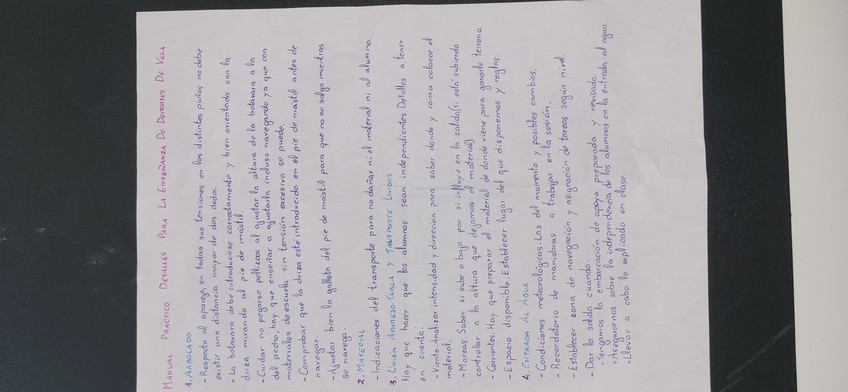 MANUAL PRÁCTICO DETALLES PARA LA ENSEÑANZA DE DEPORTES DE VELA
1. APAREJADO
- Respecto al aparejo, en todas sus tensiones en los distintos puños no debe
existir una distancia mayor de dos dedos.
- La botavara debe introducirse correctamente y bien orientada con la
driza mirando al pie de mástil.
- Cuidar no pegarse pellizcos al ajustar la altura de la botavara a la
del pecho, hay que enseñar a ajustarla incluso navegando ya que con
materiales de escuela sin tensión excesiva se puede.
- Comprobar que la driza esté introducida en el pie de mástil antes de
navegar.
- Ajustar bien la galleta del pie de mástil para que no se salga mientras
se navega.
2. MATERIAL
- Indicaciones del transporte para no dañar ni el material ni al alumno.
3. UNIÓN APAREJO-TABLA Y TRANSPORTE UNIDOS
Hay que hacer que los alumnos sean independientes. Detalles a tener
en cuenta:
- Viento. Analizar intensidad y dirección para saber donde y como colocar el
material.
- Mareas. Saber si sube o baja por si influye en la salida (si está subiendo
controlar a la altura que dejamos el material)
- Corrientes. Hay que preparar el material de donde viene para ganarle terreno
- Espacio disponible. Establecer lugar del que disponemos y reglas.
4. ENTRADA AL AGUA
- Condiciones meteorológicas. Las del momento y posibles cambios.
- Recordatorio de maniobras a trabajar en la sesión.
- Establecer zona de navegación y asignación de tareas según nivel.
- Dar la salida cuando:
• Tengamos la embarcación de apoyo preparada y revisada.
• Asegurarnos sobre la independencia de los alumnos en la entrada al agua.
• Llevar a cabo lo explicado en clase.